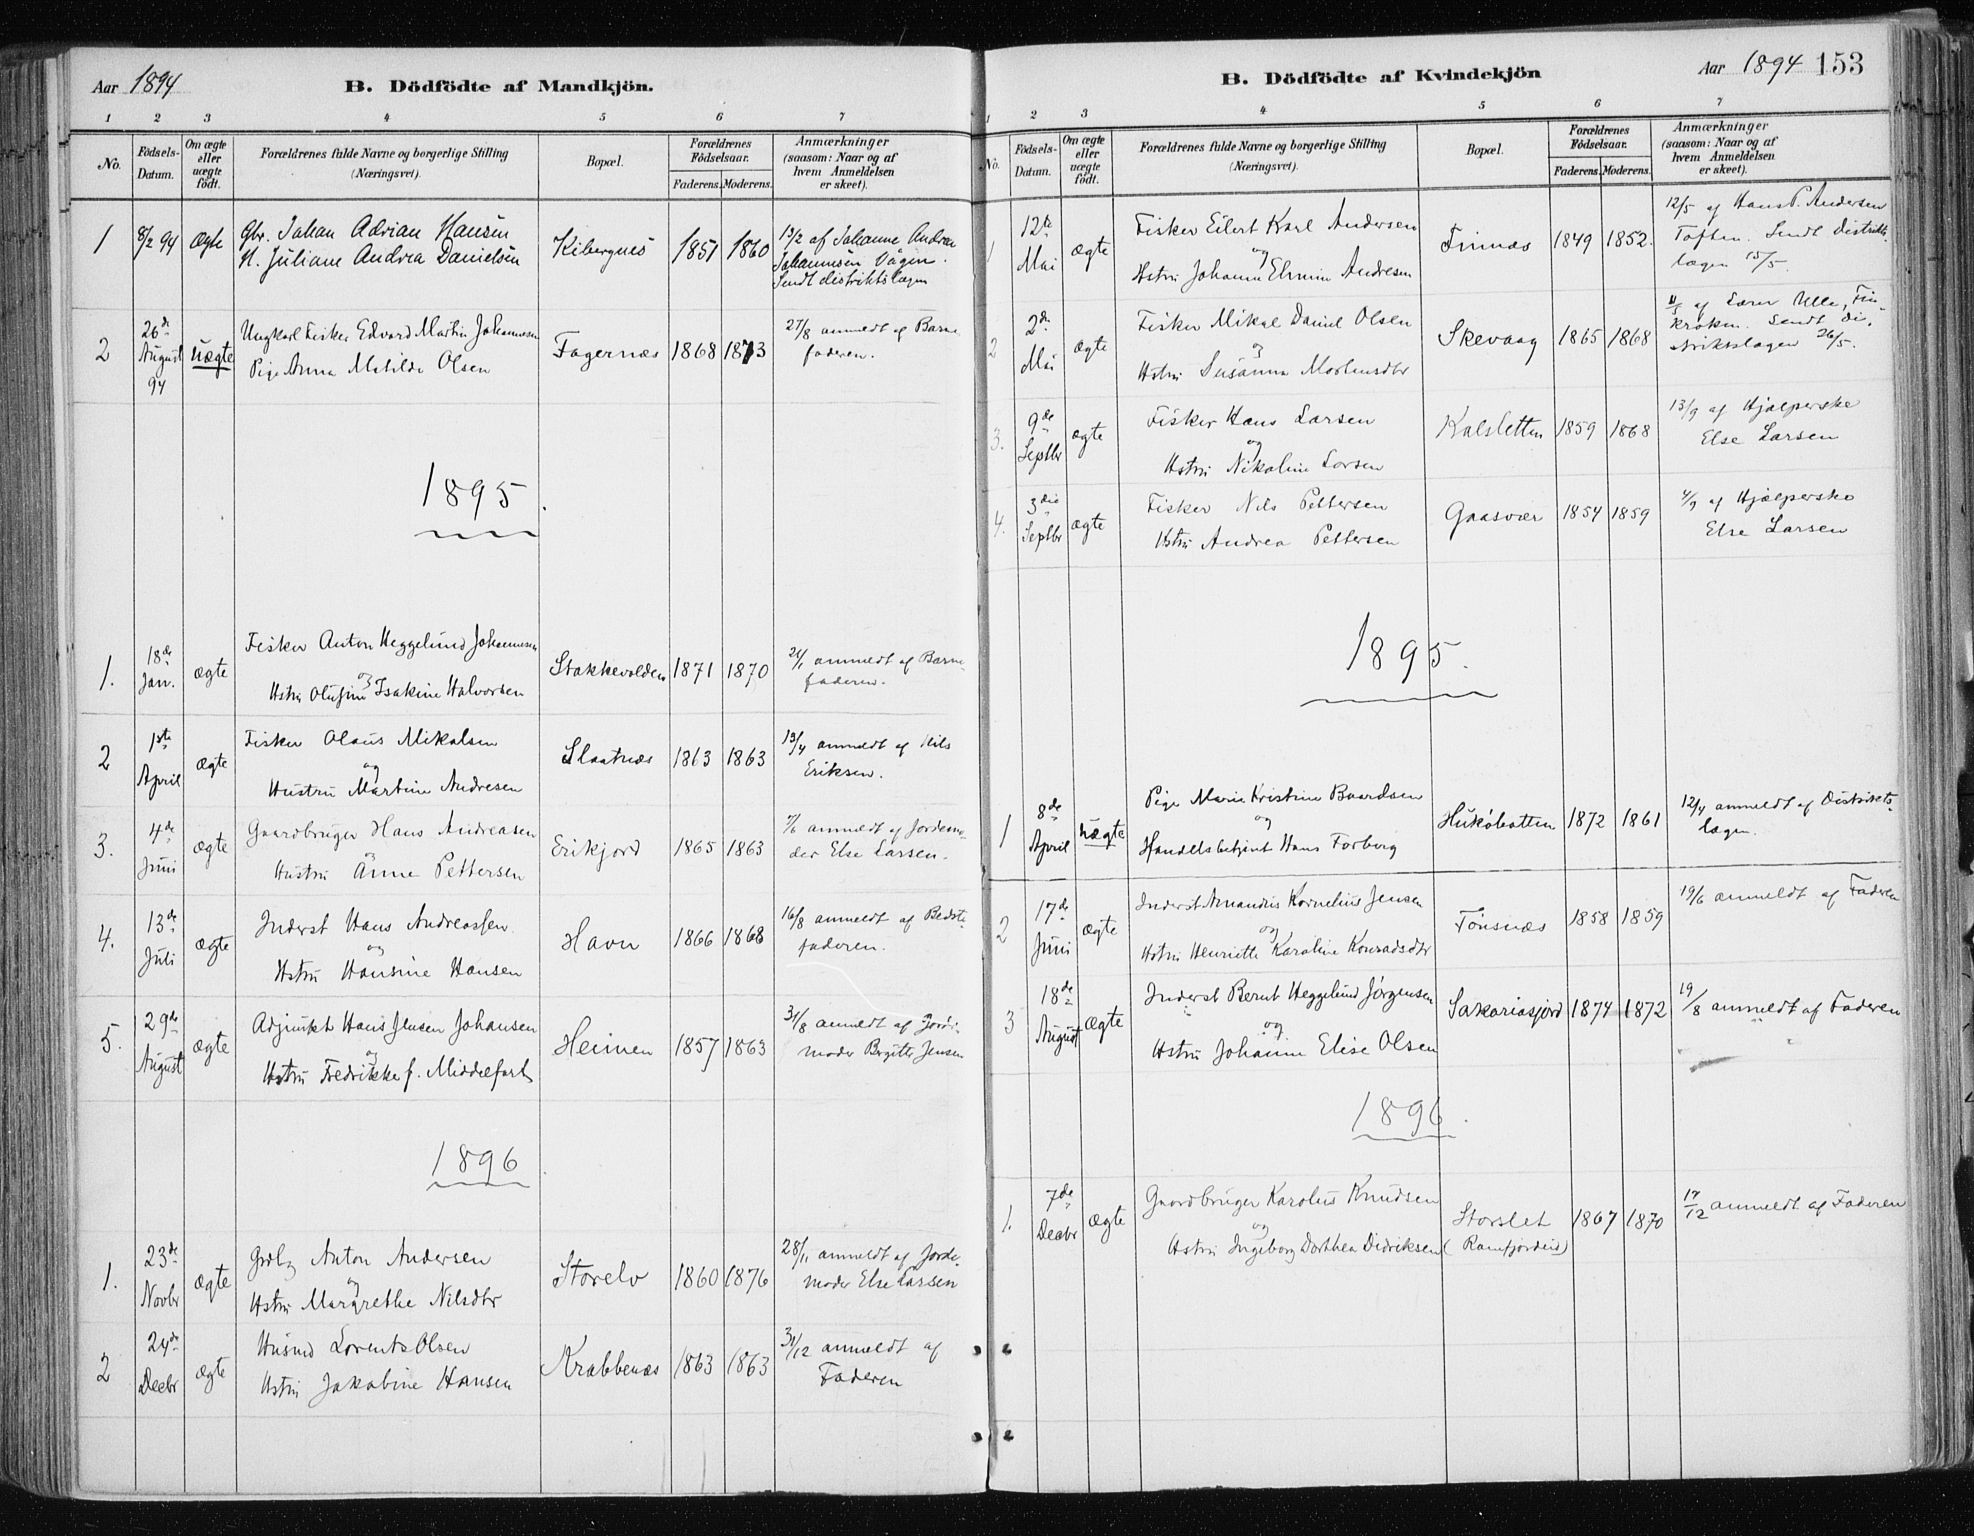 Aar 1894
B. Dödfödte af Mandkjön.
1 2 3 4 5 6 7
No.
Födsels-
Datum.
Om ægte
eller
uægte
født.
Forældrenes fulde Navne og borgerlige Stilling
(Næringsvei).
Bopæl.
Forældrenes
Födselsaar.
Faderens. Moderens.
Anmærkninger
(saasom: Naar og af
hvem Anmeldelsen
er skeet).
1 8/2 94 Ægte
Gbr. Johan Adrian Hansen
H. Juliane Andrea Danielsen
Kibergnes 1851 1860
13/2 af Johanne Andrea
Johannesen Vågen.
Sendt distriktslægen
2 26de August 94 uægte
Ungkarl Fisker Edvard Martin Johannesen
Pige Anna Matilde Olsen
Fagernæs 1868 1873
27/8 anmeldt af Barne-
faderen.
1895.
1. 18de Jan. ægte
Fisker Anton Heggelund Johannesen
og
Hstru Olufine Isakine Halvorsen
Stakkevolden 1871 1870
anmeldt af Barne-
faderen.
2 1ste April ægte
Fisker Olaus Mikalsen
og
Hustru Martine Andresen
Slaatnæs 1863 1863
13/4 anmeldt af Nils
Eriksen.
3. 4de Juni ægte
Gaardbruger Hans Andreasen
Hustru Anne Pettersen
Erikjord 1865 1863
7/6 anmeldt af Jordemo-
der Else Larsen.
4. 13de Juli ægte
Inderst Hans Andreassen
og
Hstru Hansine Hansen
Havn 1866 1868
16/8 anmeldt af Bedste-
faderen.
5. 29de August ægte
Adjunkt Hans Jensen Johansen
og
Hstru Fredrikke f. Middelfart
Heimen 1857 1863
31/8 anmeldt af Jorde-
moder Bergitte Jensen
1896.
1. 23de Novbr ægte
Grdbg Anton Andersen
og
Hstru Margrethe Nilsdtr
Storelv 1860 1876
28/11 anmeldt af Jorde-
moder Else Larsen
2 24de Decbr ægte
Husmd Lorents Olsen
Hstru Jakobine Hansen
Krabbenæs 1863 1863
31/12 anmeldt af
Faderen
B. Dödfödte af Kvindekjön
Aar 1894 153
1 2 3 4 5 6 7
No.
Födsels-
Datum.
Om ægte
eller
uægte
födt.
Forældrenes fulde Navne og borgerlige Stilling
(Næringsvei).
Bopæl.
Forældrenes
Födselsaar.
Faderens. Moderens.
Anmærkninger
(saasom: Naar og af
hvem Anmeldelsen
er skeet).
1 12te Mai ægte
Fisker Eilert Karl Andersen
og
Hstru Johanne Elmine Andresen
Finnæs 1849 1852.
12/5 af Hans P. Andersen
Toften. Sendt distrikts-
lægen 15/5.
2 2den Mai ægte
Fisker Mikal Daniel Olsen
og
Hstru Susanna Mortensdtr
Skevaag 1865 1868
af Lærer Ulle, Fin-
kroken. Sendt di-
striktslægen 26/5.
3. 9de Septbr ægte
Fisker Hans Larsen
og
Hstru Nikoline Larsen
Kalsletten 1859 1868
13/9 af Hjælperske
Else Larsen
4. 3die Septbr ægte
Fisker Nils Pettersen
Hstru Andrea Pettersen
Gaasvær 1854 1859
4/9 af Hjælperske
Else Larsen
1895.
1 8de April uægte
Pige Marie Kristine Baardsen
og
Handelsbetjent Hans Forberg
Hukøbotten 1872 1861
12/4 anmeldt af Distrikts-
lægen.
2 17de Juni ægte
Inderst Amandus Kornelius Jensen
og
Hstru Henriette Karoline Konradsdtr
Tønsnæs 1858 1859
19/6 anmeldt af Faderen
3 18de August ægte
Inderst Bernt Heggelund Jørgensen
og
Hstru Johanne Elise Olsen
Sakariasjord 1874 1872
19/8 anmeldt af Faderen
1896.
1. 7de Decbr ægte
Gaardbruger Karolius Knudsen
og
Hstru Ingeborg Dorthea Didriksen
Storslet
(Ramfjorden)
1867 1870
17/12 anmeldt af Faderen